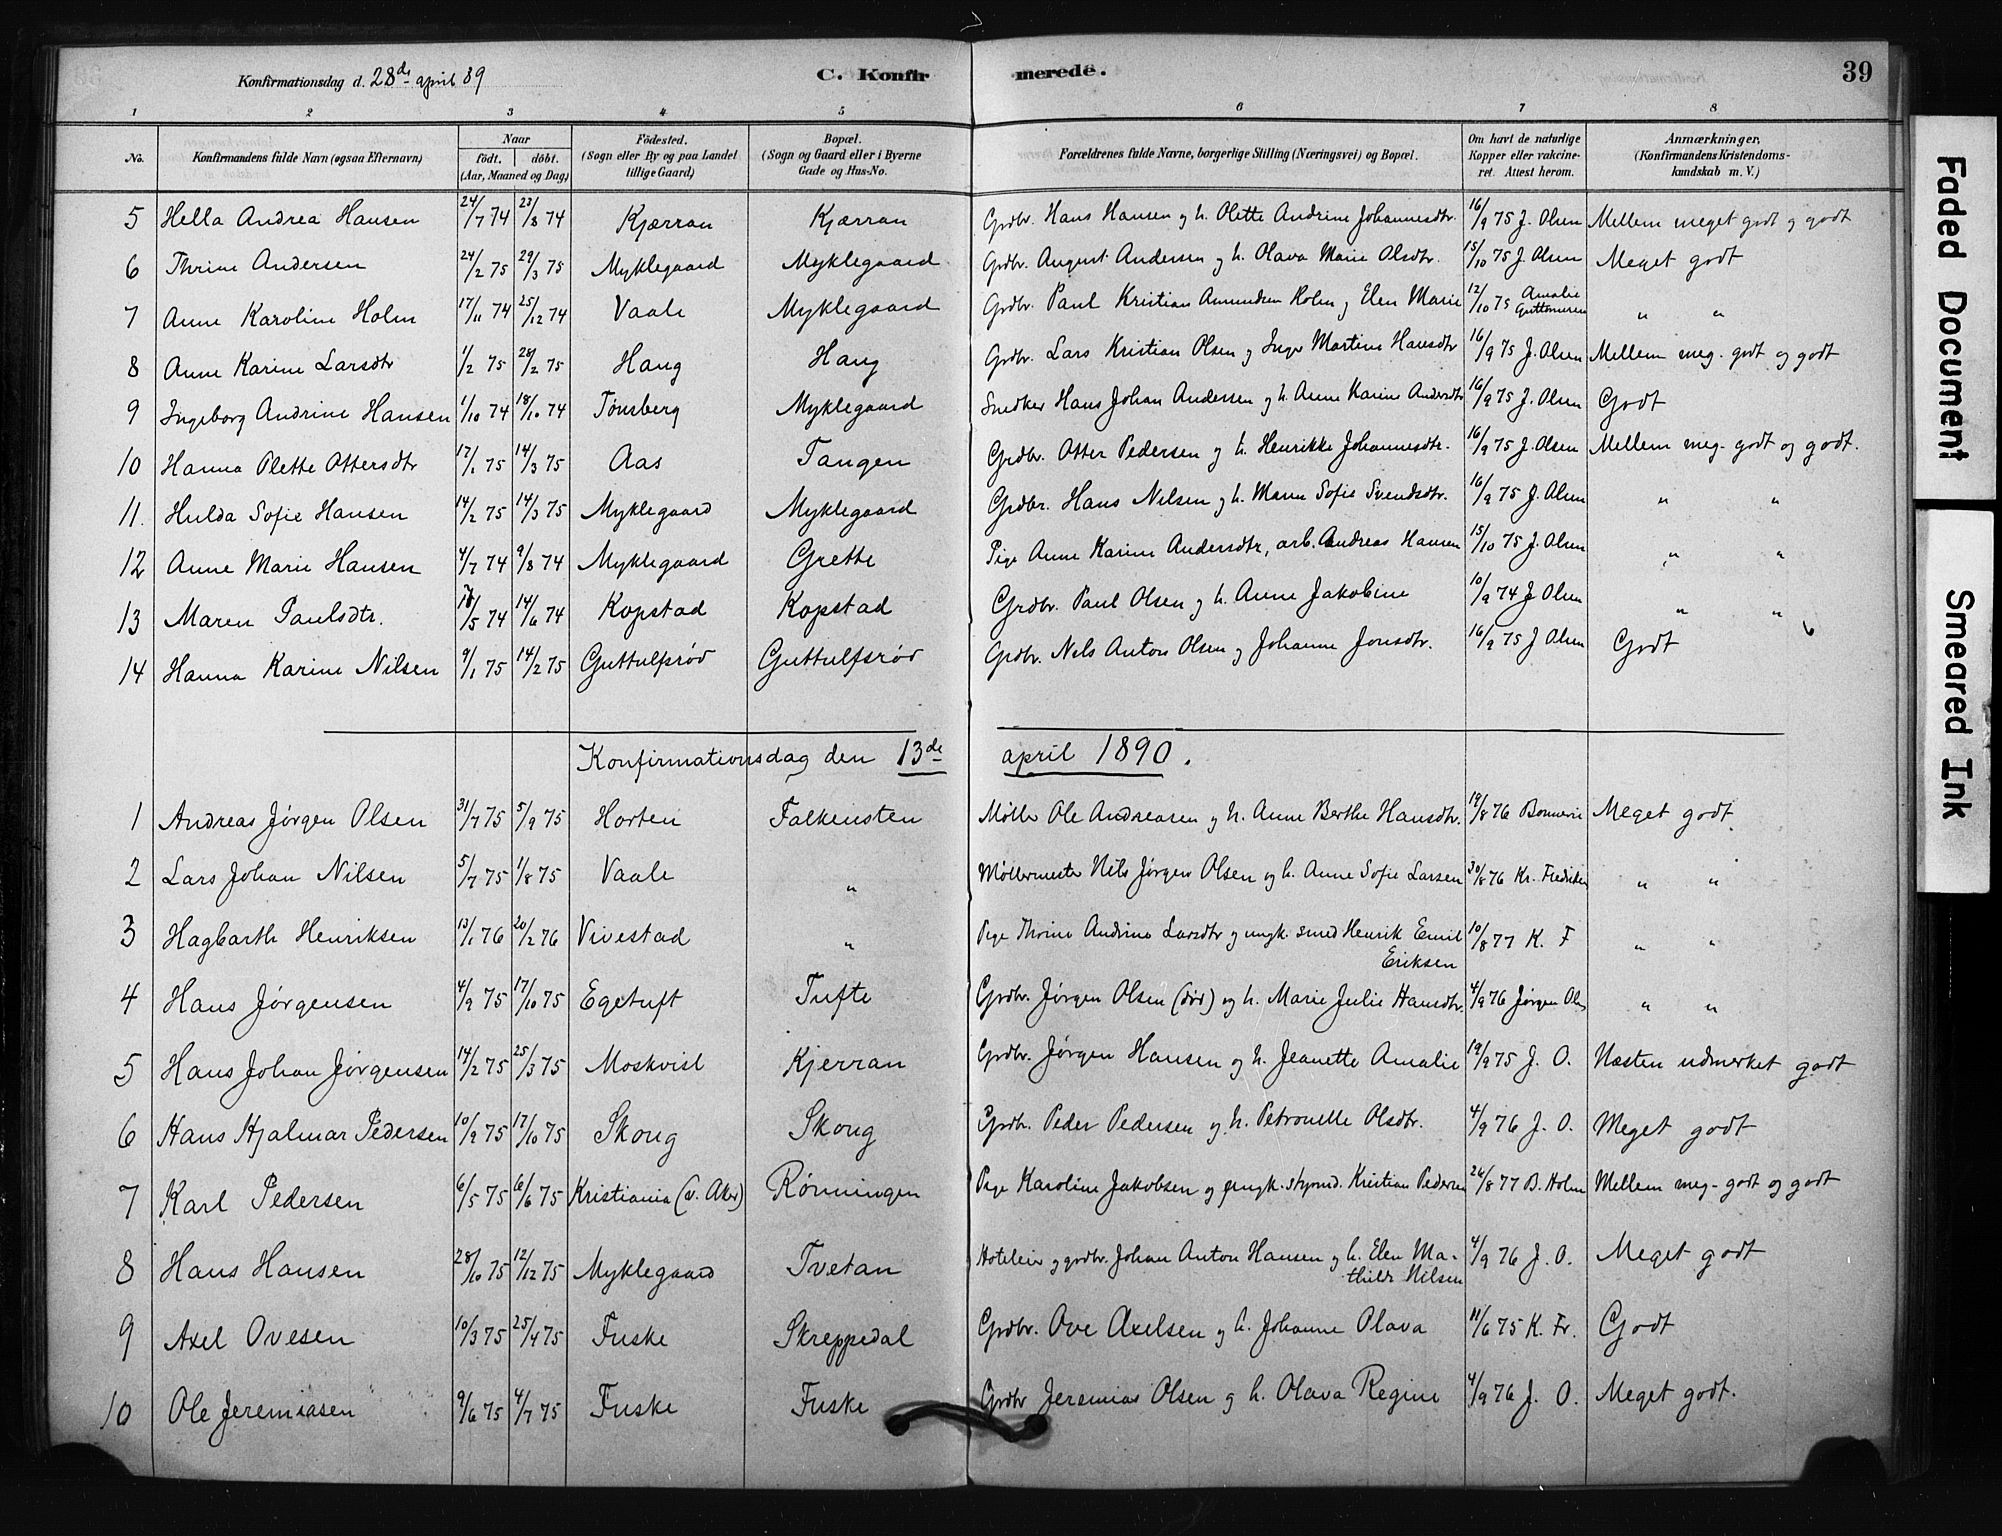 Konfirmationsdag d. 28de april 89 C. Konfirmerede. 39
1 2 3 4 5 6 7 8
No. Konfirmandens fulde Navn (ogsaa Efternavn) Naar født. døbt. (Aar, Maaned og Dag) Fødested. (Sogn eller By og paa Landet tillige Gaard) Bopæl. (Sogn og Gaard eller i Byerne Gade og Hus-No. Forældrenes fulde Navne, borgerlige Stilling (Næringsvei) og Bopæl. Om havt de naturlige Kopper eller vakcineret. Attest herom. Anmærkninger, (Konfirmandens Kristendomskundskab m. V.)
5 Hella Andrea Hansen 24/7 74 23/8 74 Kjærran Kjærran Grdbr. Hans Hansen og h. Olette Andrine Johannesdtr. 16/9 75 J. Olsen Mellem meget godt og godt
6 Thrine Andersen 24/2 75 29/3 75 Myklegaard Myklegaard Grdbr. August Andersen og h. Olava Marie Olsdtr. 15/10 75 J. Olsen Meget godt
7 Anne Karoline Holm 17/11 74 25/12 74 Vaale Myklegaard Grdbr. Paul Kristian Amundsen Holm og Elen Marie 12/10 75 Amalie Guttormsen " "
8 Anne Karine Larsdtr 1/2 75 28/2 75 Haug Haug Grdbr. Lars Kristian Olsen og Inger Martine Hansdtr 16/9 75 J. Olsen Mellem meg. godt og godt
9 Ingeborg Andrine Hansen 1/10 74 18/10 74 Tønsberg Myklegaard Snedker Hans Johan Andersen og h. Anne Karine Andersdtr 16/9 75 J. Olsen Godt
10 Hanna Olette Ottersdtr 17/1 75 14/3 75 Aas Tangen Grdbr. Otter Pedersen og h. Henrikke Johannesdtr. 16/9 75 J. Olsen Mellem meg. godt og godt.
11. Hulda Sofie Hansen 14/2 75 14/3 75 Myklegaard Myklegaard Grdbr. Hans Nilsen og h. Maren Sofie Svendsdtr. 16/9 75 J. Olsen " "
12 Anne Marie Hansen 4/7 74 9/8 74 Myklegaard Grette Pige Anne Karine Andersdtr, arb. Andreas Hansen 15/10 75 J. Olsen " "
13 Maren Paulsdtr. /5 74 14/6 74 Kopstad Kopstad Grdbr. Paul Olsen og h. Anne Jakobine 10/9 74 J Olsen " "
14 Hanna Karine Nilsen 9/1 75 14/2 75 Guttulfsrød Guttulfsrød Grdbr. Nels Anton Olsen og Johanne Jonsdtr. 16/9 75 J Olsen Godt
Konfirmationsdag den 13de april 1890.
1 Andreas Jørgen Olsen 31/7 75 5/9 75 Horten Falkensten Møller Ole Andreasen og h. Anne Berthe Hansdtr. 19/8 76 Bonnevie Meget godt.
2 Lars Johan Nilsen 5/7 75 1/8 75 Vaale " Møllermester Nils Jørgen Olsen og h. Anne Sofie Larsen 30/8 76 Kr. " "
3 Hagbarth Henriksen 13/1 76 20/2 76 Vivestad " Pige Thrine Andrine Larsdtr og ungk. smed Henrik Emil Eriksen 10/8 77 K. F " "
4 Hans Jørgensen 4/9 75 17/10 75 Egetuft Tufte Grdbr. Jørgen Olsen (død) og h. Marie Julie Hansdtr. 4/9 76 Jørgen Ols " "
5 Hans Johan Jørgensen 14/2 75 25/3 75 Moskvist Kjerran Grdbr. Jørgen Hansen og h. Jeanette Amalie 19/9 75 J. O. Næsten udmerket godt
6 Hans Hjalmar Pedersen 10/9 75 17/10 75 Skoug Skoug Grdbr. Peder Pedersen og h. Petronelle Olsdtr. 4/9 76 J. O. Meget godt
7 Karl Pedersen 6/5 75 6/6 75 Kristiania (v. Aker) Rønningen Pige Karoline Jakobsen og ungk. styrmd. Kristian Pedersen 26/8 77 B. Holm Mellem meg. godt og godt
8 Hans Hansen 28/10 75 12/12 75 Myklegaard Tvetan Hoteleier og grdbr. Johan Anton Hansen og h. Elen Mathilde Nilsen 4/9 76 J. O. Meget godt
9 Axel Ovesen 10/3 75 25/4 75 Fuske Skreppedal Grdbr. Ove Axelsen og h. Johanne Olava 11/6 75 K. Fr. Godt
10 Ole Jeremiasen 9/6 75 4/7 75 Fuske Fuske Grdbr Jeremias Olsen og h. Olava Regine 4/9 76 J. O. Meget godt.
Faded Document
Smeared Ink